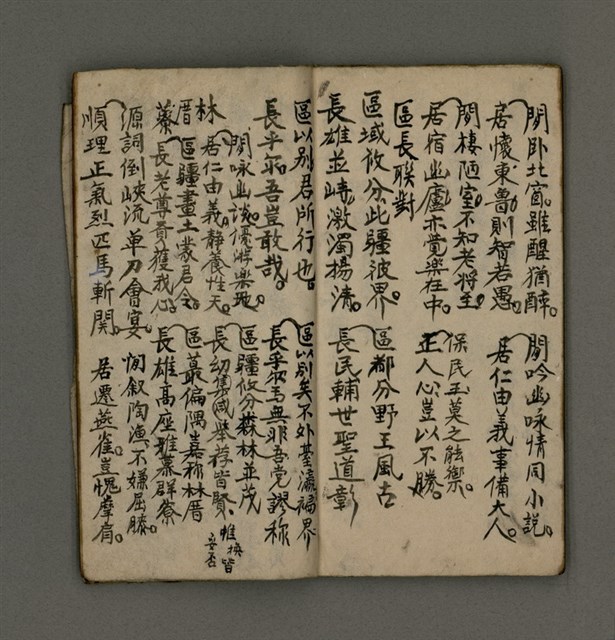 閒卧北窗。雖醒猶醉。
居懷東魯。則智若愚。
閒吟幽咏情同小說。
居仁由義事備大人。
閒棲陋室。不知老將至。
居宿幽廬亦覺樂在中。
保民玉莫之能禦。
正人心豈以不勝。
區長聯對
區域攸分。此疆彼界。
長雄並峙。激濁揚清。
區都分野王風古
長民輔世聖道彰
區以別君所行也。
長乎爾。吾豈敢哉。
區以別矣不外臺瀛福界
長乎爾焉無非吾党謬称
閒咏幽談。優游樂地。
居仁由義。靜養性天。
區疆攸分森林並茂
長幼集咸舉荐皆賢
林厝寮
區疆畫土裳君令。
長老尊者獲我心。
區蕞偏隅嘉称林厝
長雄高座雅慕群寮
惟換皆妥否
源詞倒峽流單刀會宴。
順理正氣烈匹馬斬関。
閒叙陶漁。不嫌屈膝。
居遷燕雀。豈愧摩肩。